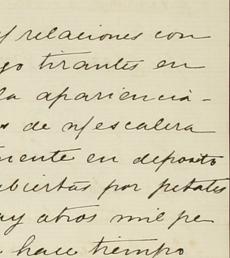 y relaciones con
go tirantes en
la apariencia-
de n/escalera
mente en deposito
abiertas por petates
ay otros mil pe
hace tiempo